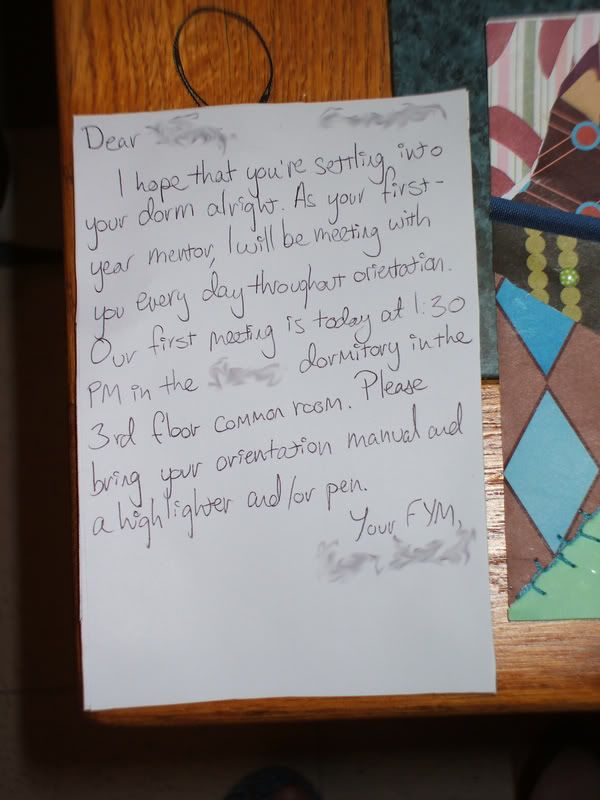 Dear
I hope that you're settling into
your dorm alright. As your first-
year mentor, I will be meeting with
you every day throughout orientation.
Our first meeting is today at 1:30
PM in the dormitory in the
3rd floor common room. Please
bring your orientation manual and
a highlighter and/or pen.
Your FYM,